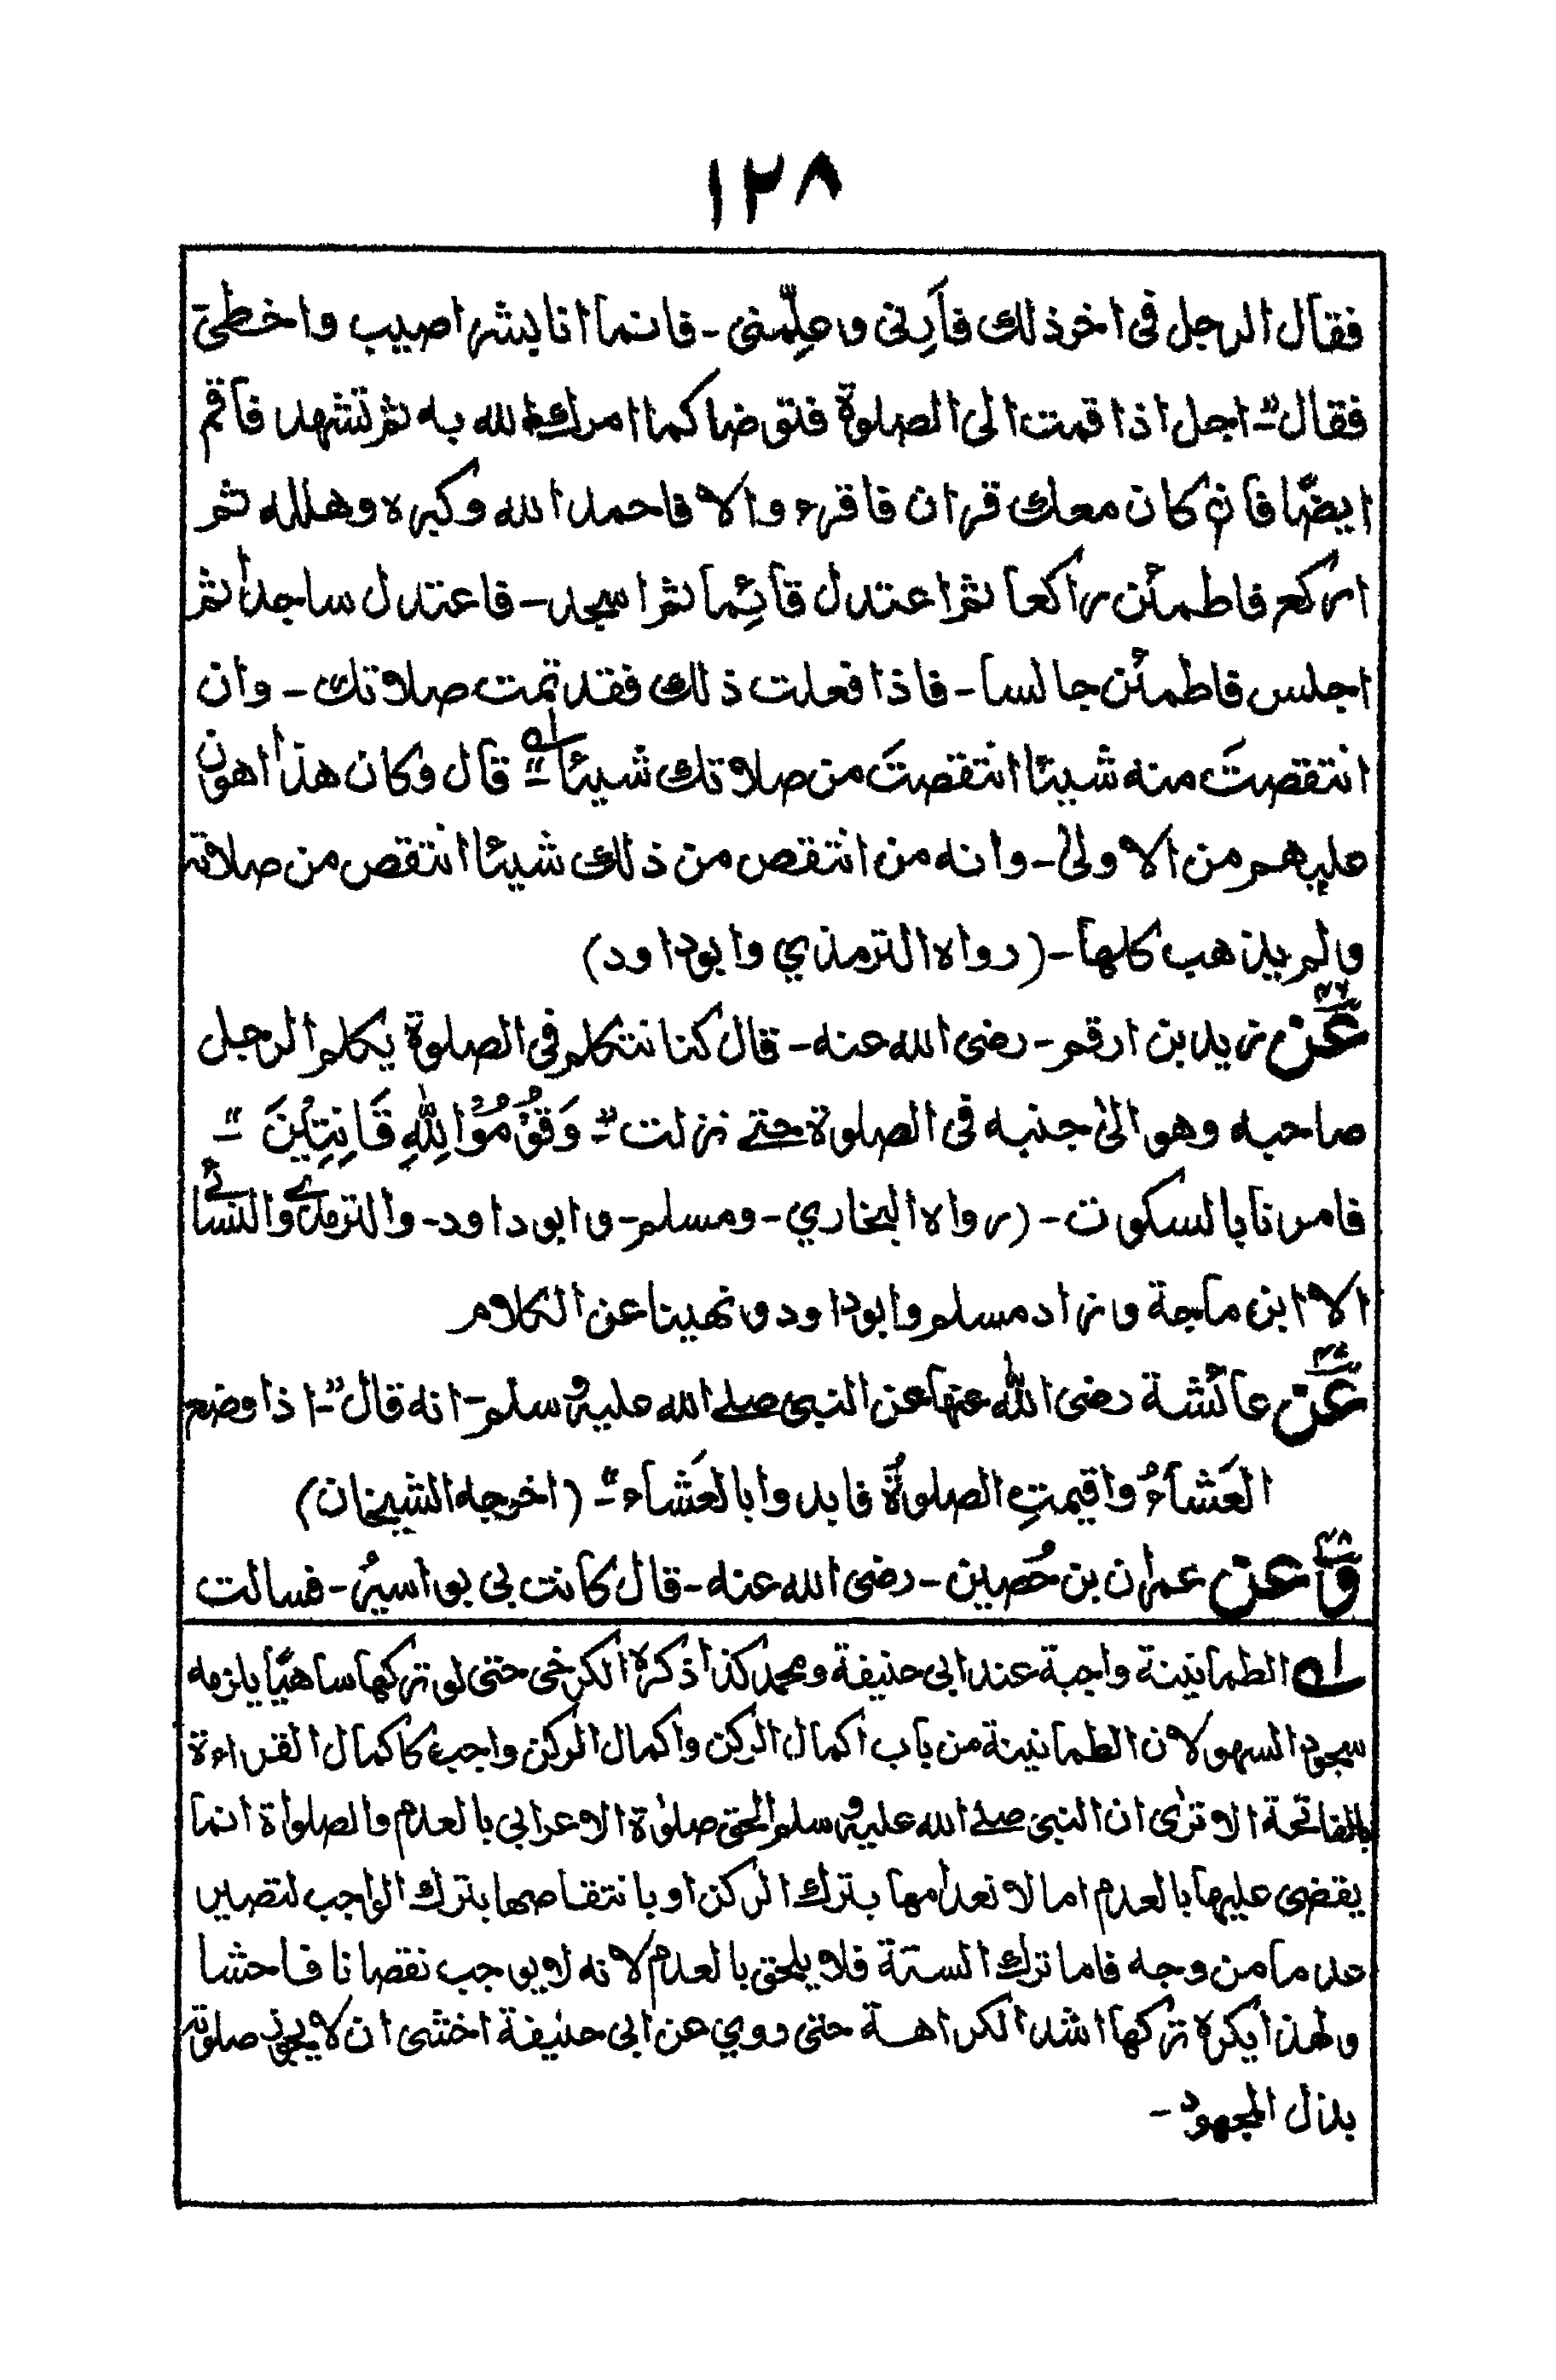 ١٢٨
فقال الرجل فى اخر ذلك فأَرِنى وعلِّمنى - فانما انا بشر اصيب واخطئ
فقال " اجل اذا قمت الى الصلوة فتوضا كما امرك الله به ثم تشهد فاقم
ايضًا فان كان معك قران فاقرء والا فاحمد الله وكبره وهلله ثم
اركع فاطمئن راكعا ثم اعتدل قائِما ثم اسجد - فاعتدل ساجدا ثم
اجلس فاطمئن جالسا - فاذا فعلت ذلك فقد تمت صلاتك - وان
انتقصتَ منه شيئا انتقصتَ من صلاتك شيئا " له قال وكان هذا اهون
عليهم من الاولى - وانه من انتقص من ذلك شيئا انتقص من صلاته
ولم يذهب كلها - (رواه الترمذي وابوداود)
عن زيد بن ارقم - رضى الله عنه - قال كنا نتكلم فى الصلوة يكلم الرجل
صاحبه وهو الى جنبه فى الصلوة حتے نزلت " وَقُوْمُوْا لِلّٰهِ قَانِتِيْنَ "
فامرنا بالسكوت - (رواه البخاري - ومسلم - وابوداود - والترمذے والنسائے
الا ابن ماجة وزاد مسلم وابوداود ونهينا عن الكلام
عن عائشة رضى الله عنها عن النبى صلے الله عليه وسلم - انه قال " اذا وضع
العَشاءُ واقيمتِ الصلوةُ فابدوا بالعَشاء " - (اخرجه الشيخان)
وعن عمران بن حُصين - رضى الله عنه - قال كانت بى بواسيرُ - فسالت
له الطمانينة واجبة عند ابى حنيفة ومحمد كذا ذكره الكرخى حتى لو تركها ساهيًا يلزمه
سجود السهو لان الطمانينة من باب اكمال الركن واكمال الركن واجب كاكمال القراءة
بالفاتحة الا ترٰى ان النبى صلے الله عليه وسلم الحق صلوٰة الاعرابى بالعدم والصلواة انما
يقضى عليها بالعدم اما لانعدامها بترك الركن او بانتقاصها بترك الواجب لتصير
عدما من وجه فاما ترك السنة فلا يلحق بالعدم لانه لا يوجب نقصانا فاحشا
ولهذا يكره تركها اشد الكراهة حتى روي عن ابى حنيفة اخشى ان لا يجوز صلوته
بذل المجهود -